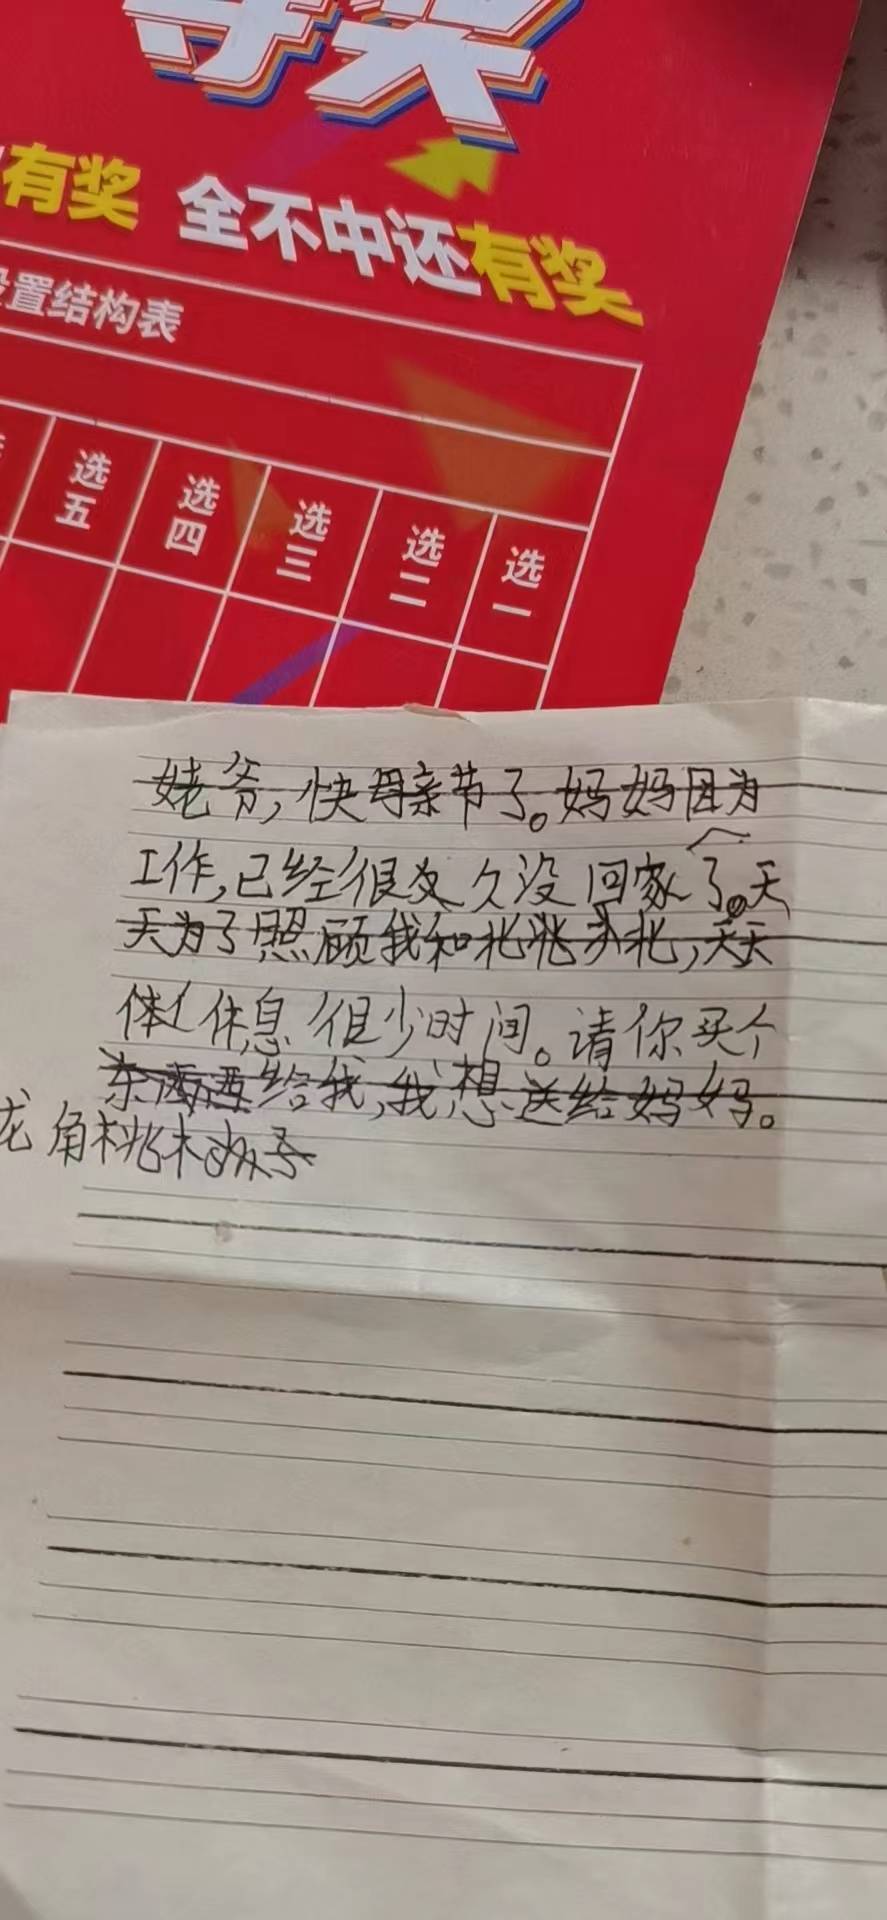 等奖
有奖 全不中还有奖
设置结构表
选五 选四 选三 选二 选一
姥爷,快母亲节了。妈妈因为
工作,已经很久没回家了。天
天为了照顾我和兆兆 北,天天
休息很少时间。请你买个
东西 给我,我想送给妈妈。
龙角桃木